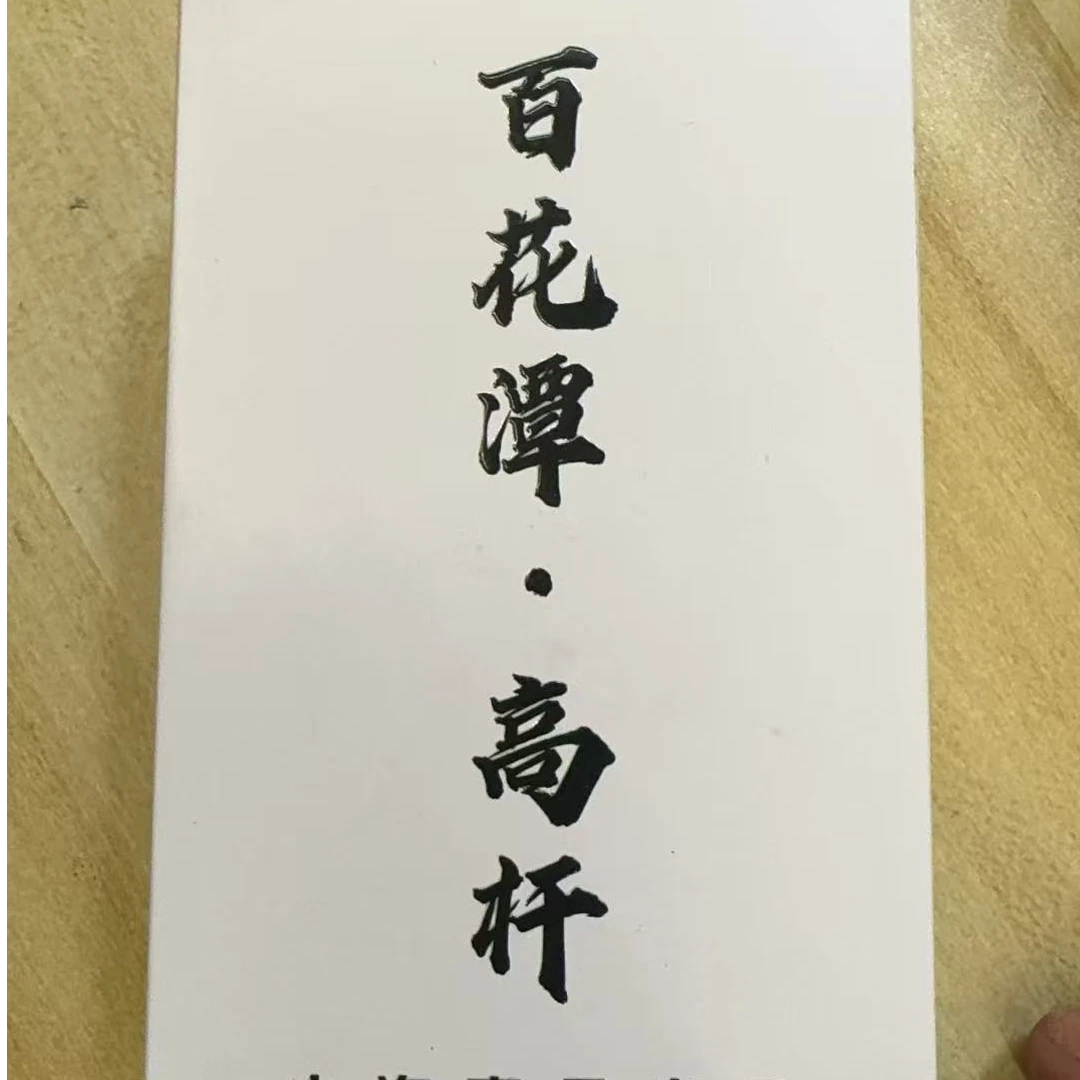 百花潭·高杆